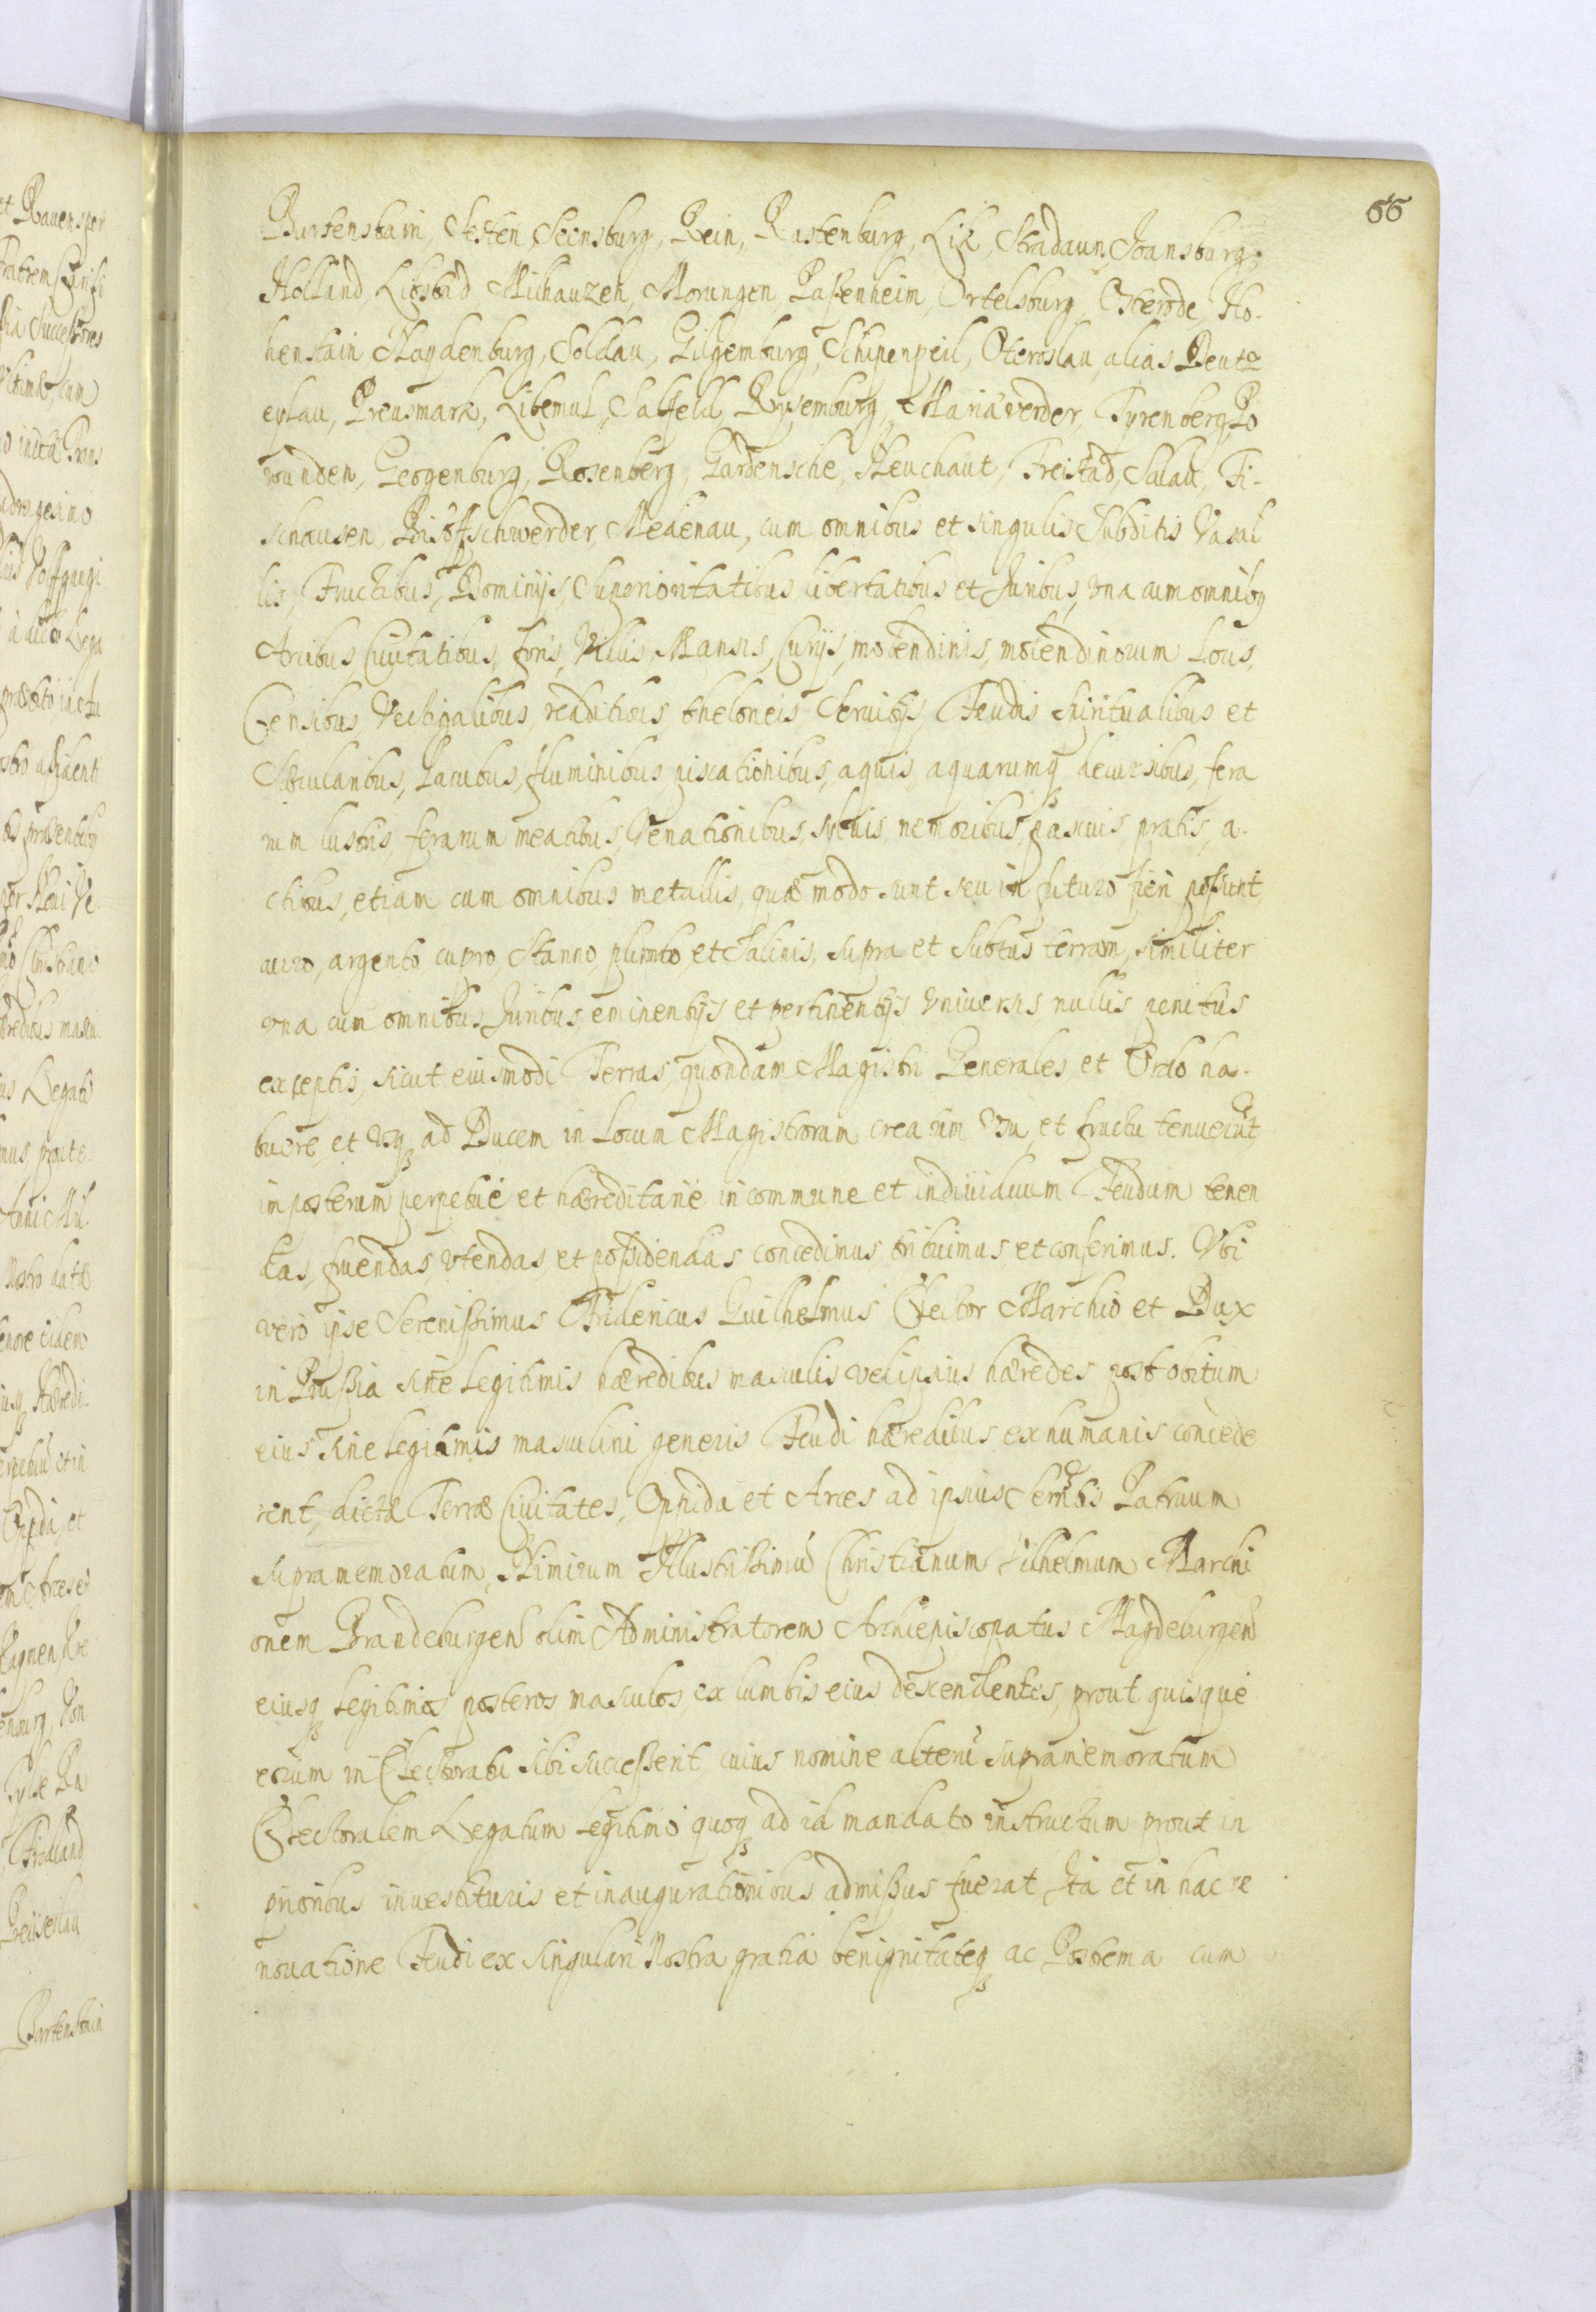 66
Bartenstain, Sesten, Seensburg, Rein, Rastenburg, Lik, Stradaun, Joansburg,
Holland, Libstad, Milhauzen, Morungen, Paßenheim, Ortelsburg, Osterode, Ho-
henstain Naydenburg, Soldau, Gilgemburg, Schipenpeil, Oteroslau, alias Deutz
eylau, Preusmark, Libemul, Salfeld, Rysemburg, Mariæverder, Tyrenberg, Po
vunden, Geogenburg, Rosenberg, Gardensche, Neuchaut, Freistad, Salau, Fi-
schausen, Bisoffschwerder, Medenau, cum omnibus et singulis Subditis Vasal
lis, Fructibus, Dominijs, Superioritatibus libertatibus et Juribus, vna cum omnibq
Arcibus, Ciuitatibus, foris, Villis, Mansis, Curijs, molendinis, molendinorum Locis,
Censibus, Vectigalibus, redditibus, theloneis, Seruitijs, Feudis Spiritualibus et
Sæcularibus, Lacubus, fluminibus, piscationibus, aquis, aquarumq decursibus, fera
rum lustris, ferarum meatibus, Venationibus, syluis, nemoribus, pascuis, pratis, a-
ctibus, etiam cum omnibus metallis, quæ modo sunt seu in futuro fieri poßunt,
auro, argento, cupro, Stanno, plumbo, et Salinis, supra et Subtus terram, similiter
vna cum omnibus Juribus, eminentijs et pertinentijs Vniuersis nullis penitus
exceptis, sicut eiusmodi Terras, quondam Magistri Generales, et Ordo ha-
buere, et Vsq ad Ducem in Locum Magistrorum creatum Vsu, et fructu tenuerut,
in posterum perpetué et hæreditarié in commune et indiuiduum Feudum tenen
das, fruendas, vtendas, et poßidendas concedimus, tribuimus, et conferimus. Vbi
veró ipse Serenißimus Fridericus Guilhelmus Elector Marchio et Dux
in Prußia sine legitimis hæredibus masculis vel ipsius hæredes post obitum
eius sine legitimis masculini generis Feudi hæredibus ex humanis concede
rent, dictæ Terræ Ciuitates, Oppida et Arces ad ipsius Sermtis Patruum
supramemoratum, Nimirum Illustrißimũ Christianum Vilhelmum Marchi
onem Brandeburgen olim Administratorem Archiepiscopatus Magdeburgen
eiusq legitimos posteros masculos, ex lumbis eius descendentes, prout quisque
eorum in Electoratu sibi succeßerit, cuius nomine alterũ supramemoratum
Electoralem Legatum legitimo quoq ad id mandato instructum prout in
prioribus inuestituris et inaugurationibus admißus fuerat, Ita et in hac re
nouatione Feudi ex singulari Nostra gratia benignitateq ac Postrema cum